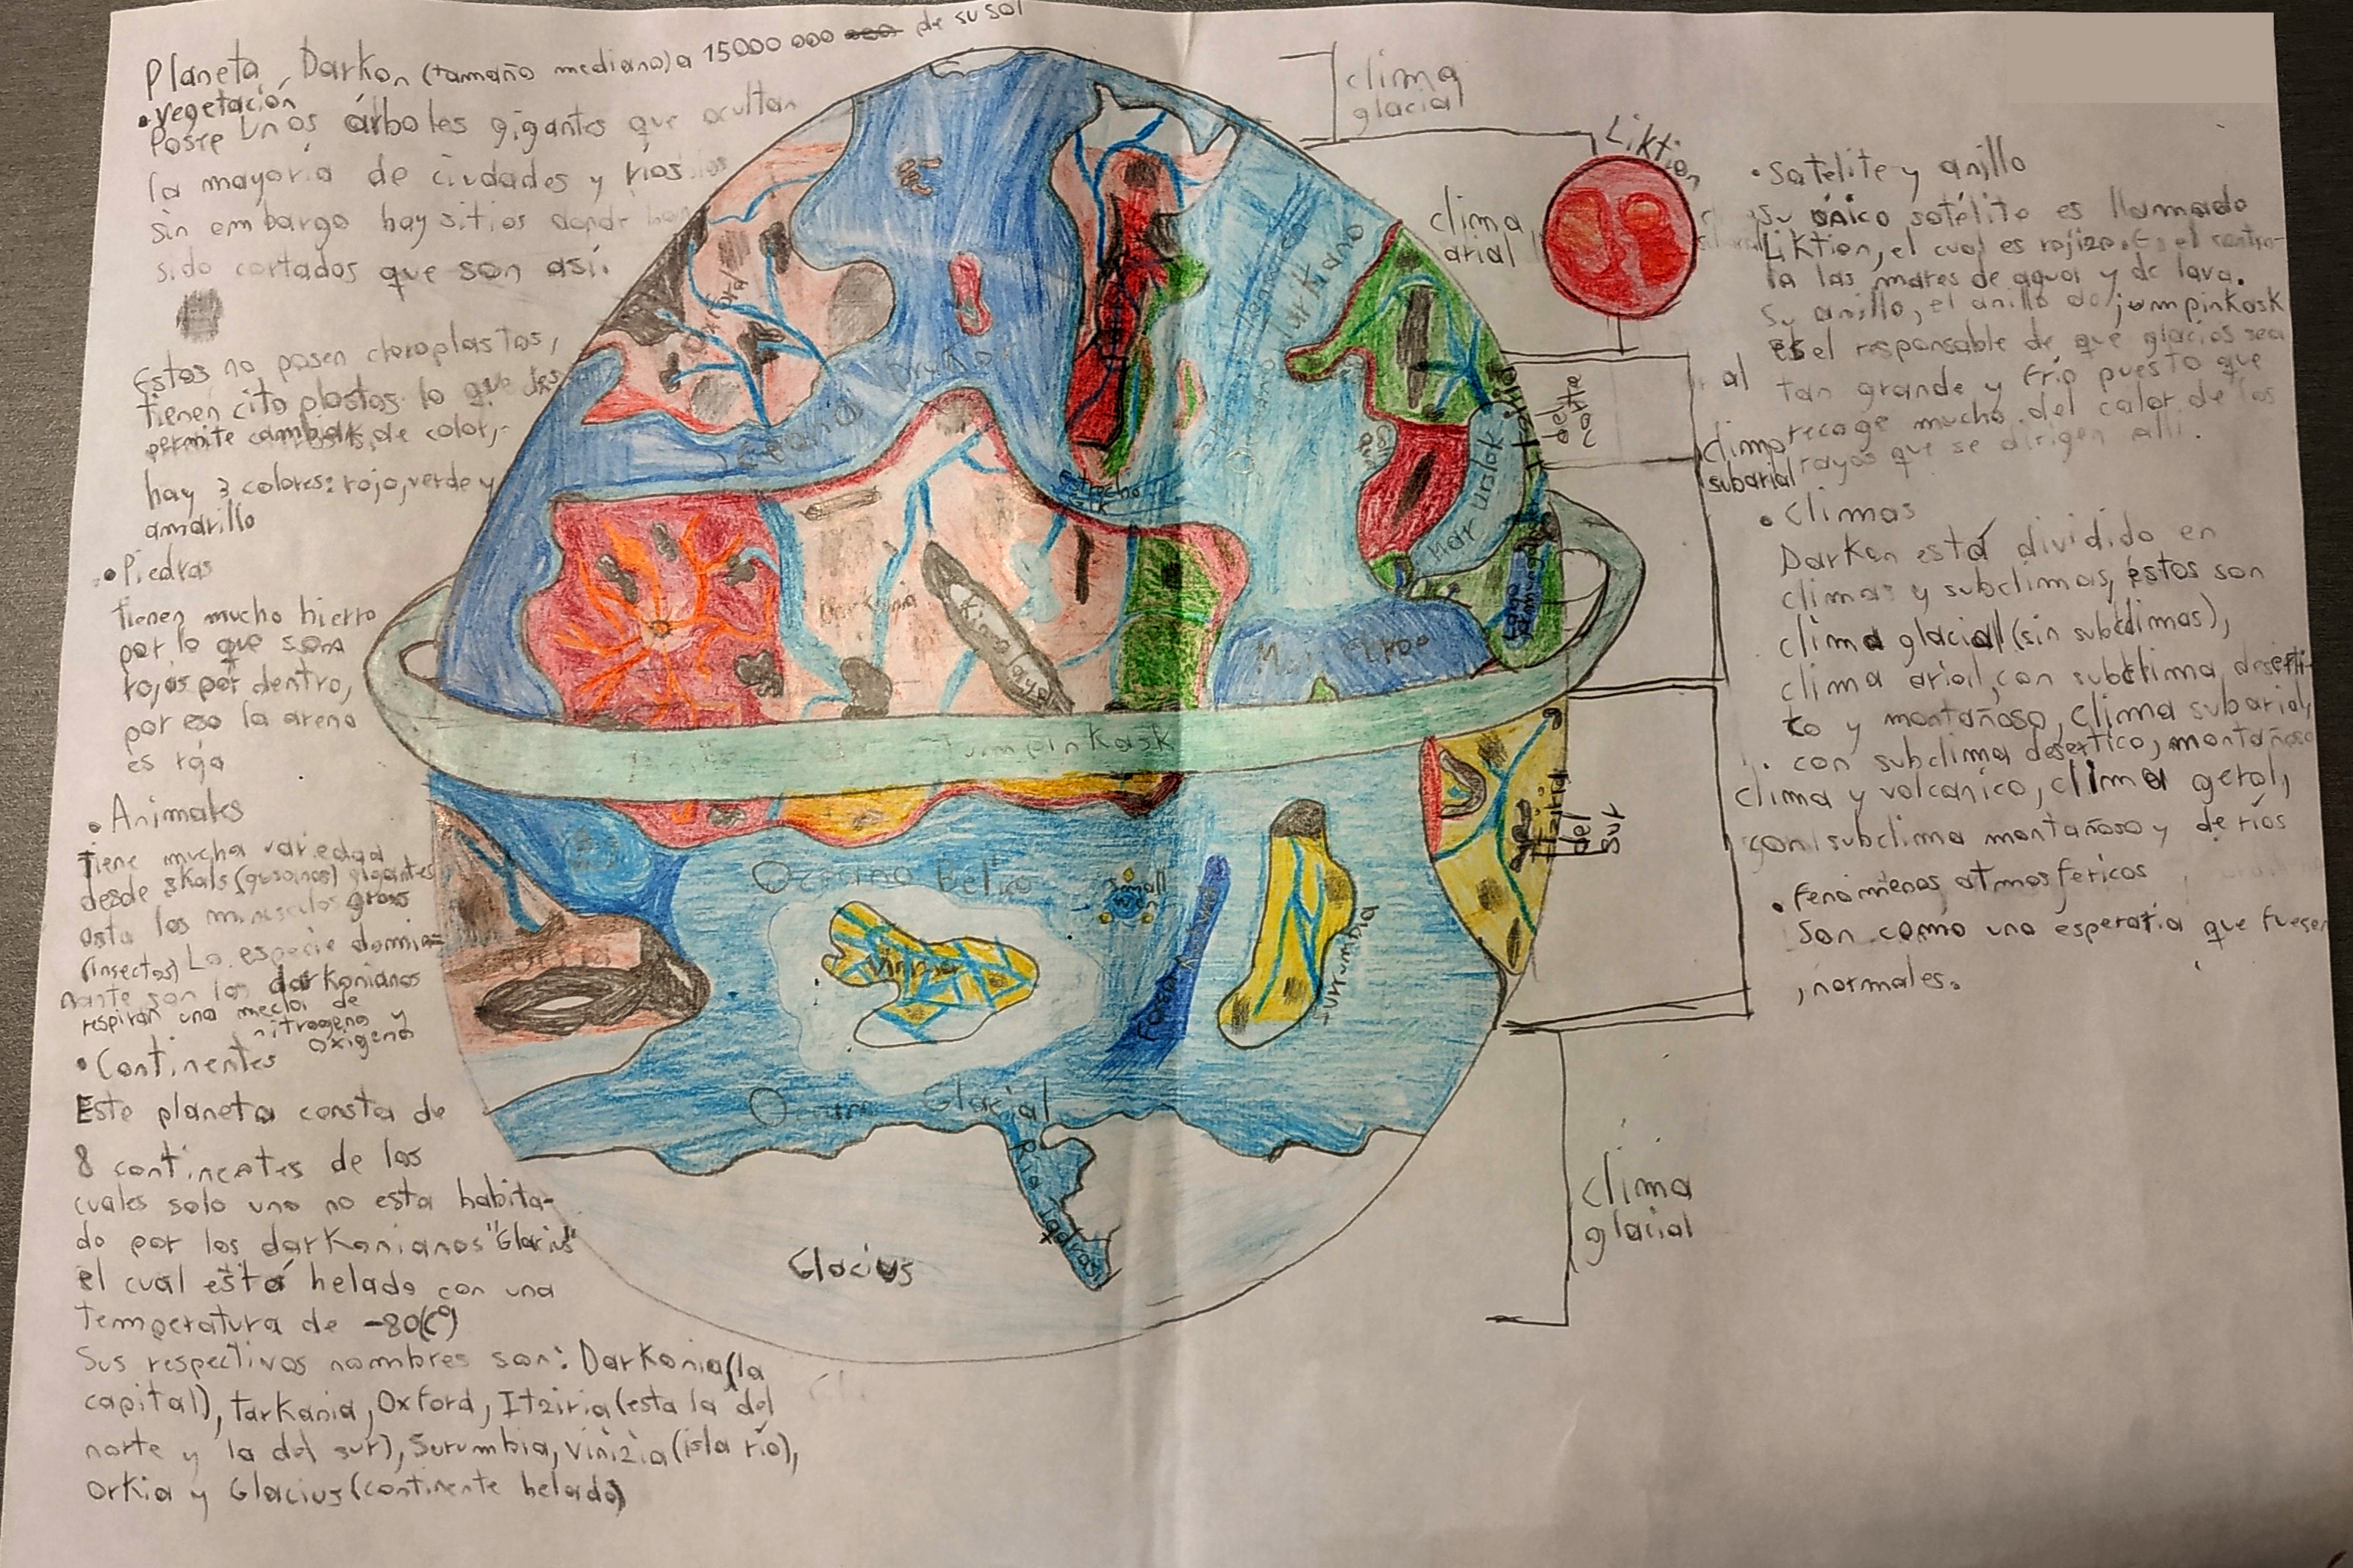 Planeta Darkon (tamaño mediano) a 15000 000 de su sol
• vegetación
Posee unos árboles gigantes que ocultan
la mayoría de ciudades y ríos
sin embargo hay sitios donde han
sido cortados que son así.
Estos no posen cloroplastos,
tienen cito plastos lo que les
permite cambiar de color,
hay 3 colores: rojo, verde y
amarillo
• Piedras
tienen mucho hierro
por lo que son
rojas por dentro,
por eso la arena
es roja
• Animales
Tiene mucha variedad
desde skals (gusanos) gigantes
asta los minusculos
(insectos) La especie domi=
nante son los darkonianos
respiran una mecla de
nitrogeno y
oxigeno
• Continentes
Este planeta consta de
8 continentes de los
cuales solo uno no esta habita-
do por los darkonianos "Glacius"
el cual está helado con una
temperatura de -80(C°)
Sus respectivos nombres son: Darkonia (la
capital), Tarkania, Oxford, Itziria (esta la del
norte y la del sur), Surumbia, Vinizia (isla río),
Orkia y Glacius (continente helado)
clima
glacial
clima
arial
Liktion
Oceano
Oceano Turkiano
Estrecho
Mar urslok
Lago
Mar
del
norte
clima
subarial
Darkonia
Jumpinkask
Oceano Belico
Small
Vinizia
Fosa
Surrumbia
Itziria
del
sur
Oceano Glacial
Río
Glacius
clima
glacial
• Satelite y anillo
Su único satélite es llamado
Liktion, el cual es rojizo. Es el contro-
la las mares de agua y de lava.
Su anillo, el anillo de jumpinkask
es el responsable de que glacius sea
tan grande y frío puesto que
recoge mucho del calor de los
rayos que se dirigen allí.
• Climas
Darkon está dividido en
climas y subclimas, éstos son
clima glacial (sin subclimas),
clima arial, con subclima deserti-
co y montañoso, clima subarial,
con subclima desertico, montañoso
clima y volcanico, clima
con subclima montañoso y de ríos
• Fenómenos atmosfericos
Son como uno esperaria que fuesen
, normales.